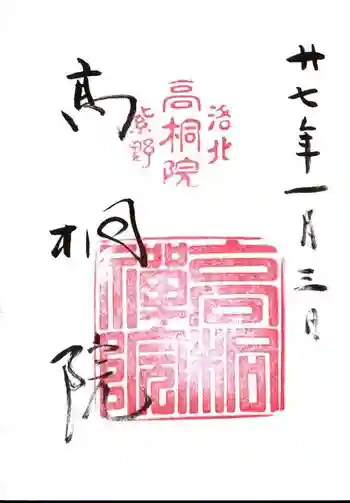 廿七年一月三日
洛北
高桐院
紫野
高桐院
高桐
禅院